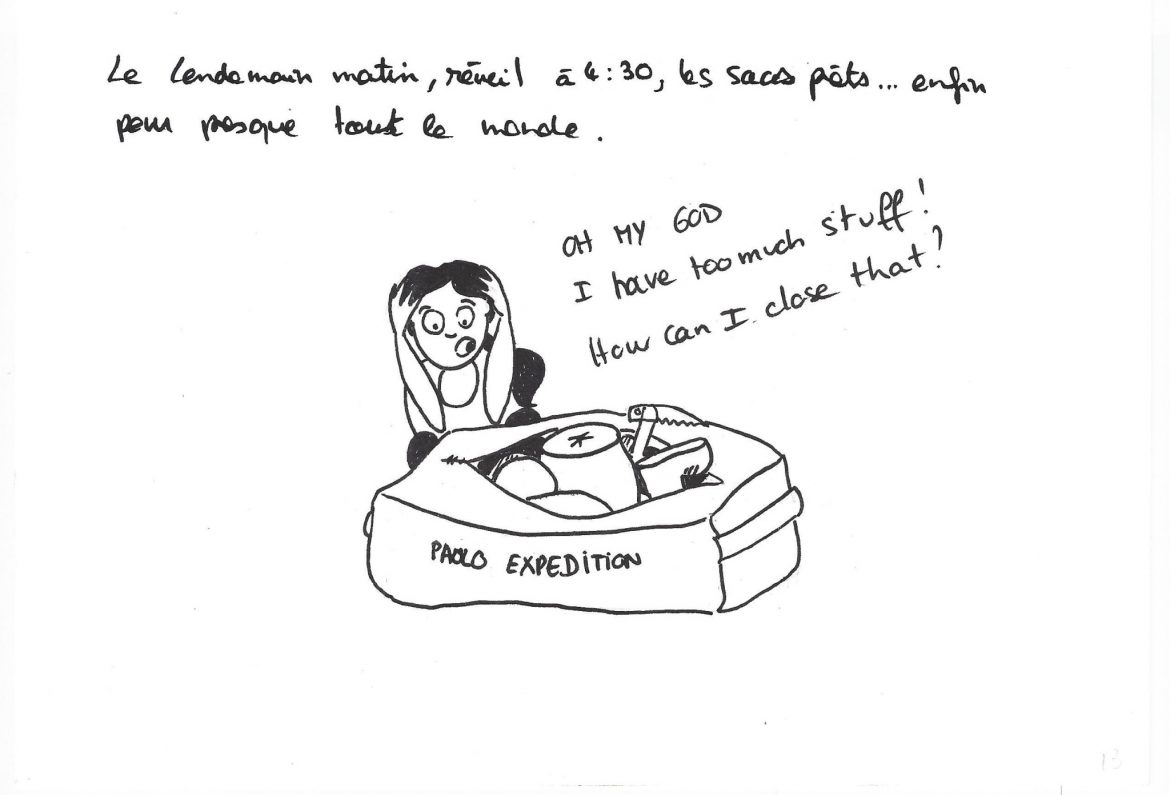 Le lendemain matin, réveil à 4:30, les sacs prêts... enfin
pour presque tout le monde.
OH MY GOD
I have too much stuff!
How can I close that?
PAOLO EXPEDITION
13